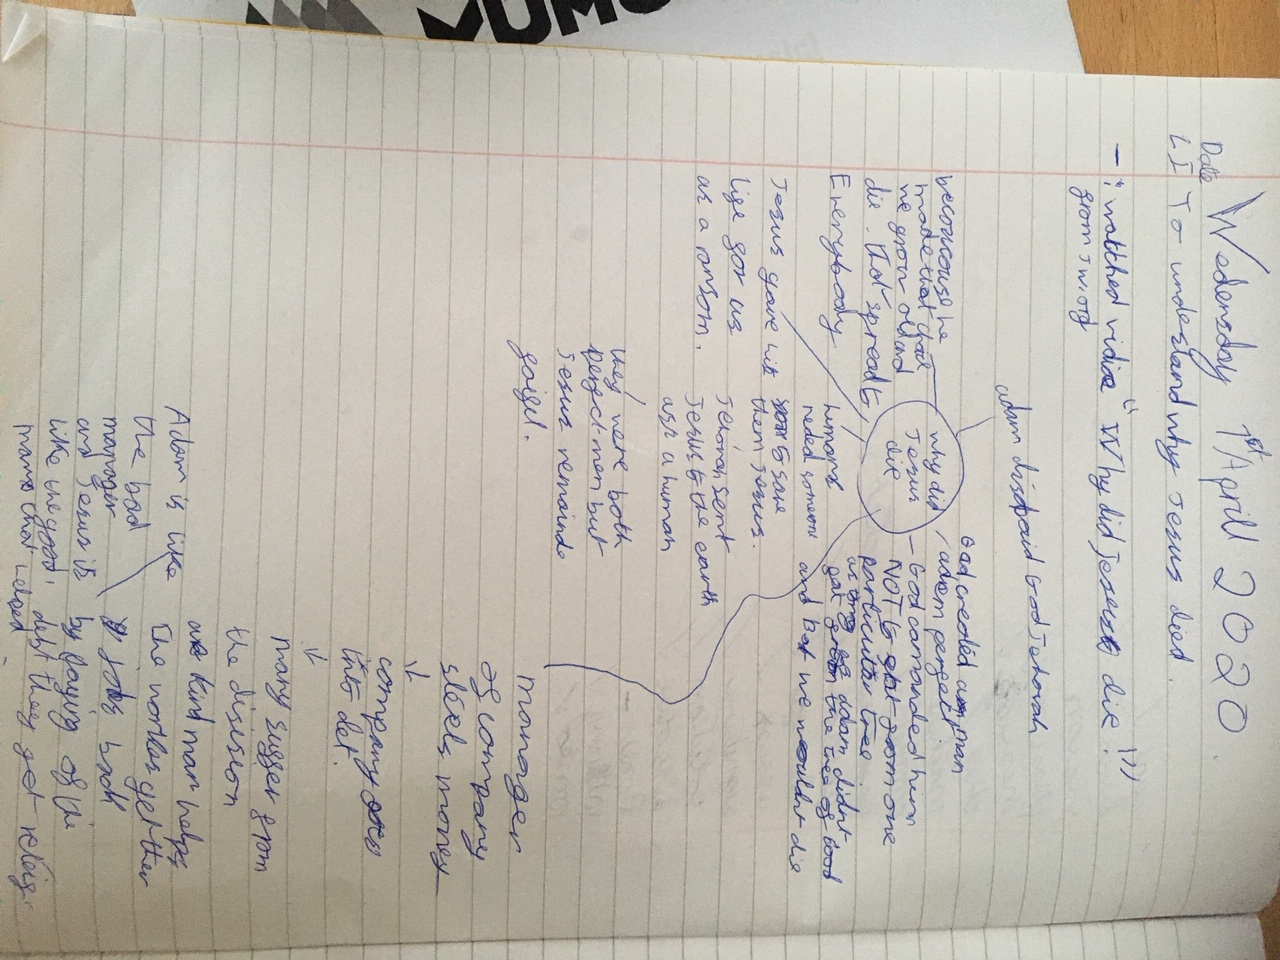 Date Wedensday 1st April 2020.
LI To understand why Jesus died.
- I watched vidioe "Why did Jesus die"!!!
from jw.org
adam disobaid God Jehovah
God created a man
, adam perfect
- God camanded him
NOT to eat from one
particular tree
as long as adam didnt
tree of Good
and bad we wouldnt die
why did
Jesus
die
he
made that
he grow old and
die. that spread to
Everybody
humans
neded someon
to save
them Jesus.
Jehovah sent
Jesus to the earth
as a human
Jesus gave his
life for us
as a ransom.
they were both
perfect men but
Jesus remaind
faifel.
manager
of company
steels money
↓
company
into det.
↓
many suffer from
the disision
kind man helps
the workes get ther
jobs back
by paying of the
debt they get
Adam is like
the bad
manager
and Jesus is
like the good
man that helped
VUMU